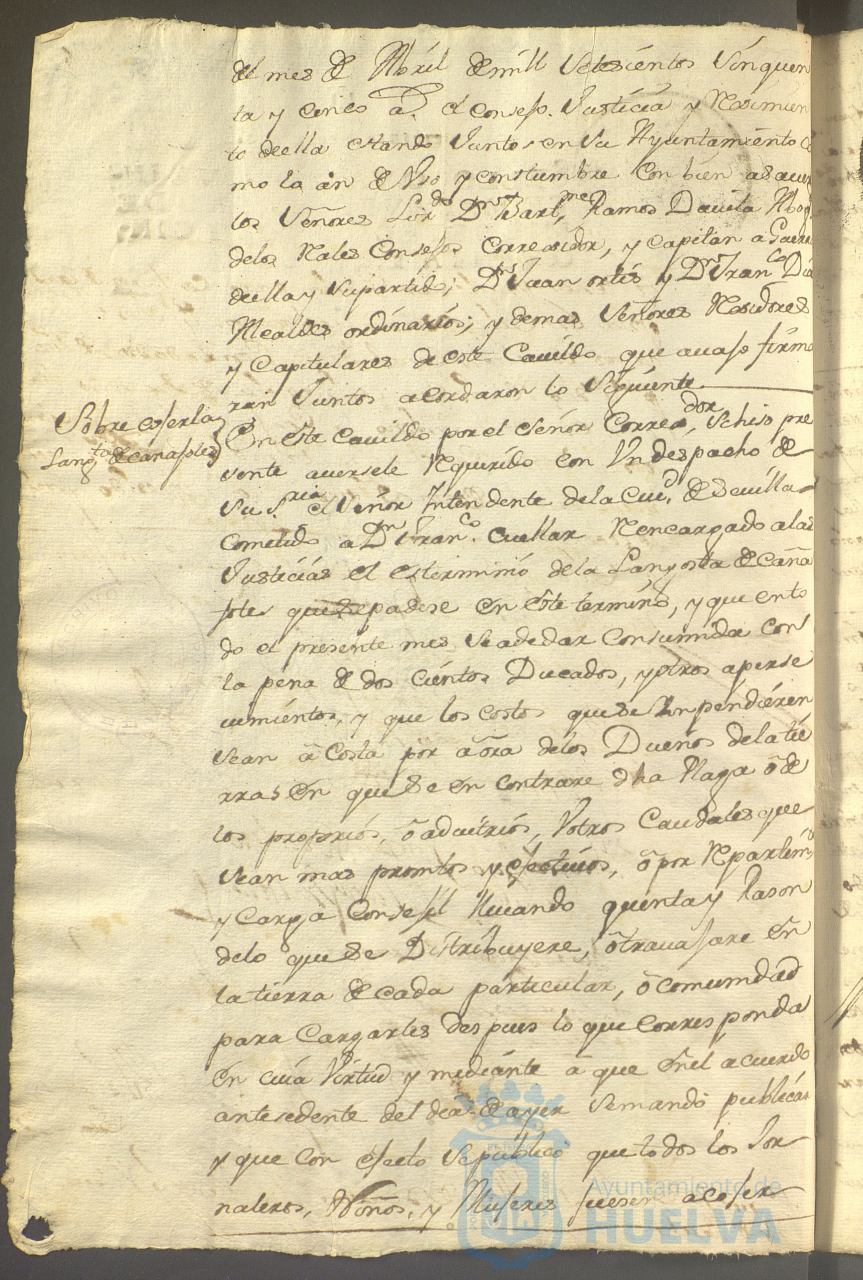 del mes de Abril de mill setesientos sinquen
ta y cinco a.s el Consejo Justicia y Reximien
to de ella estando Juntos en su Ayuntamiento co
mo la an de Vso y constumbre Con bien a saver
los Señores Lizdo. Dn. Bartme. Ramos Davila Abog
de los Rales Consejos Correxidor, y Capitan a Guerra
de ella y su partido; Dn. Juan ortis y Dn. Franco. Dia
Alcaldes ordinarios; y demas Señores Rexidores
y Capitulares de este Cavildo que avajo firma
ran Juntos acordaron lo siguiente
Sobre cojer la
Langta. de canastos
En este Cavildo por el Señor Corredor, se hiso pre
sente averse le Requerido con Un despacho de
su sria. el Señor Intendente de la Ciud. de Sevilla
Cometido a Dn. Franco. Cuellar Rencargado a las
Justicias el estermino de la Langosta de caña
que se padese en este termino, y que en to
do el presente mes se a de dar Consumida con
la pena de dos cientos Ducados, y otros aperse
uimientos, y que los costos que se Inpendieren
sean a Costa por aora de los Dueños de la tie
rras en que se en contrare dha Plaga o de
los proprios, o aduitrios, V otros Caudales que
sean mas promtos y efectivos, o por Repartimto.
y Carga Consejil lleuando quenta y Rason
de lo que se Distribuyere, o travajare en
la tierra de cada particular, o comunidad
para Cargarles despues lo que corresponda
en cuia Virtud y mediante a que en el acuerdo
antesedente del dia de ayer se mando publicar
y que con efecto se publico que todos los Jor
naleros, Niños, y Mujeres fuesen a cojer
Ayuntamiento de
HUELVA